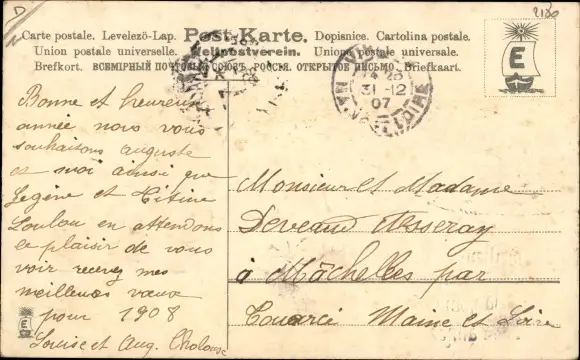 D
2130
Carte postale. Levelezö-Lap. Post-Karte. Dopisnice. Cartolina postale.
Union postale universelle. Weltpostverein. Unione postale universale.
Brefkort. ВСЕМІРНЫЙ ПОЧТОВЫЙ СОЮЗЪ. РОССІЯ. ОТКРЫТОЕ ПИСЬМО. Briefkaart.
E
31-12
07
LOIRE
Bonne et heureuse
année nous vous
souhaitons auguste
et moi ainsi que
et
Loulou en attendons
le plaisir de vous
voir recevez mes
meilleures vœux
pour 1908
Louise et Aug.
Monsieur et Madame
à Mâchelles par
Touarcé Maine et Loire
E